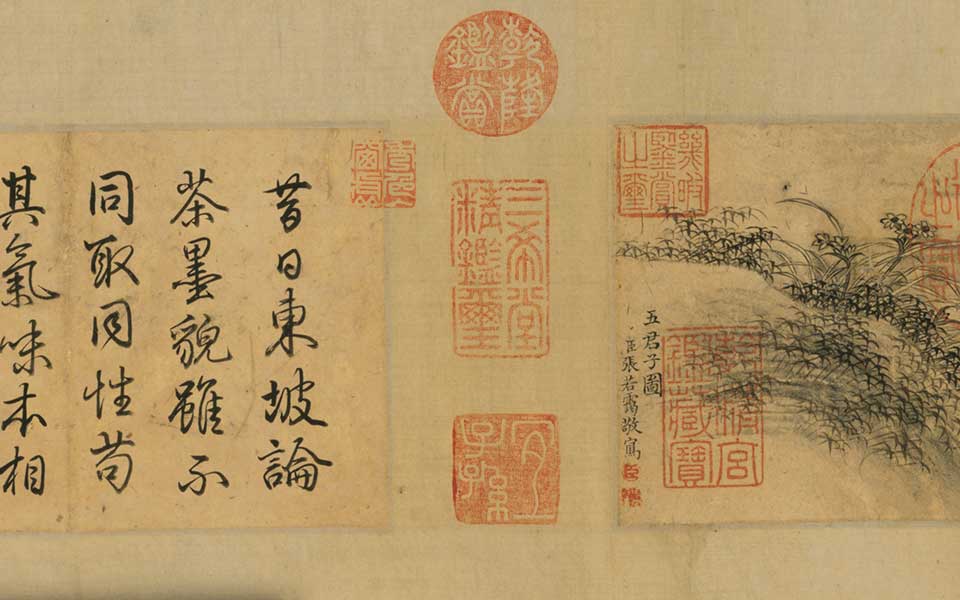 幾暇
鑒賞
之璽
五君子圖
臣張若靄敬寫
乾清宮
鑒藏寶
乾隆
鑑賞
三希堂
精鑑璽
宜
子孫
昔日東坡論
茶墨貌雖不
同取同性苟
其氣味本相